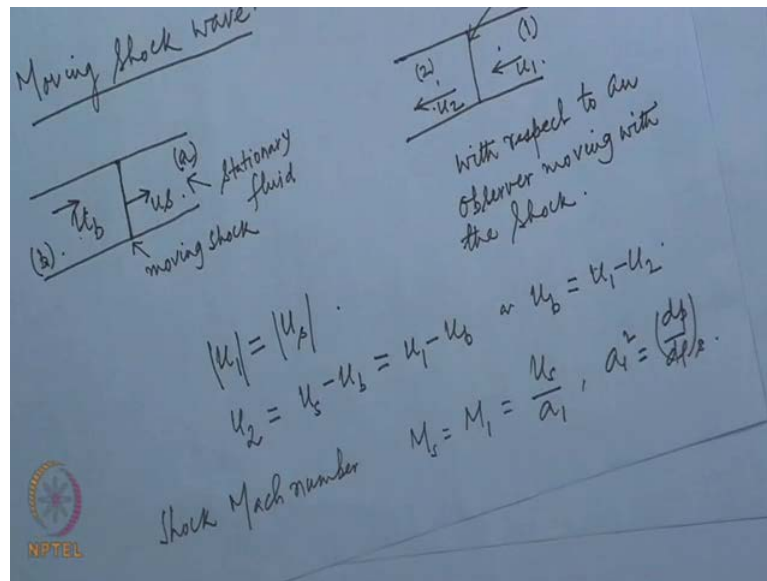 Moving Shock wave.
(a)
u_s.
Stationary
fluid
u_b
(b).
moving shock
(2)
u_2
(1)
u_1.
with respect to an
observer moving with
the Shock.
|u_1| = |u_s|.
u_2 = u_s - u_b = u_1 - u_b or u_b = u_1 - u_2.
Shock Mach number M_s = M_1 = u_s/a_1, a_1^2 = (dp/dρ)_s.
NPTEL